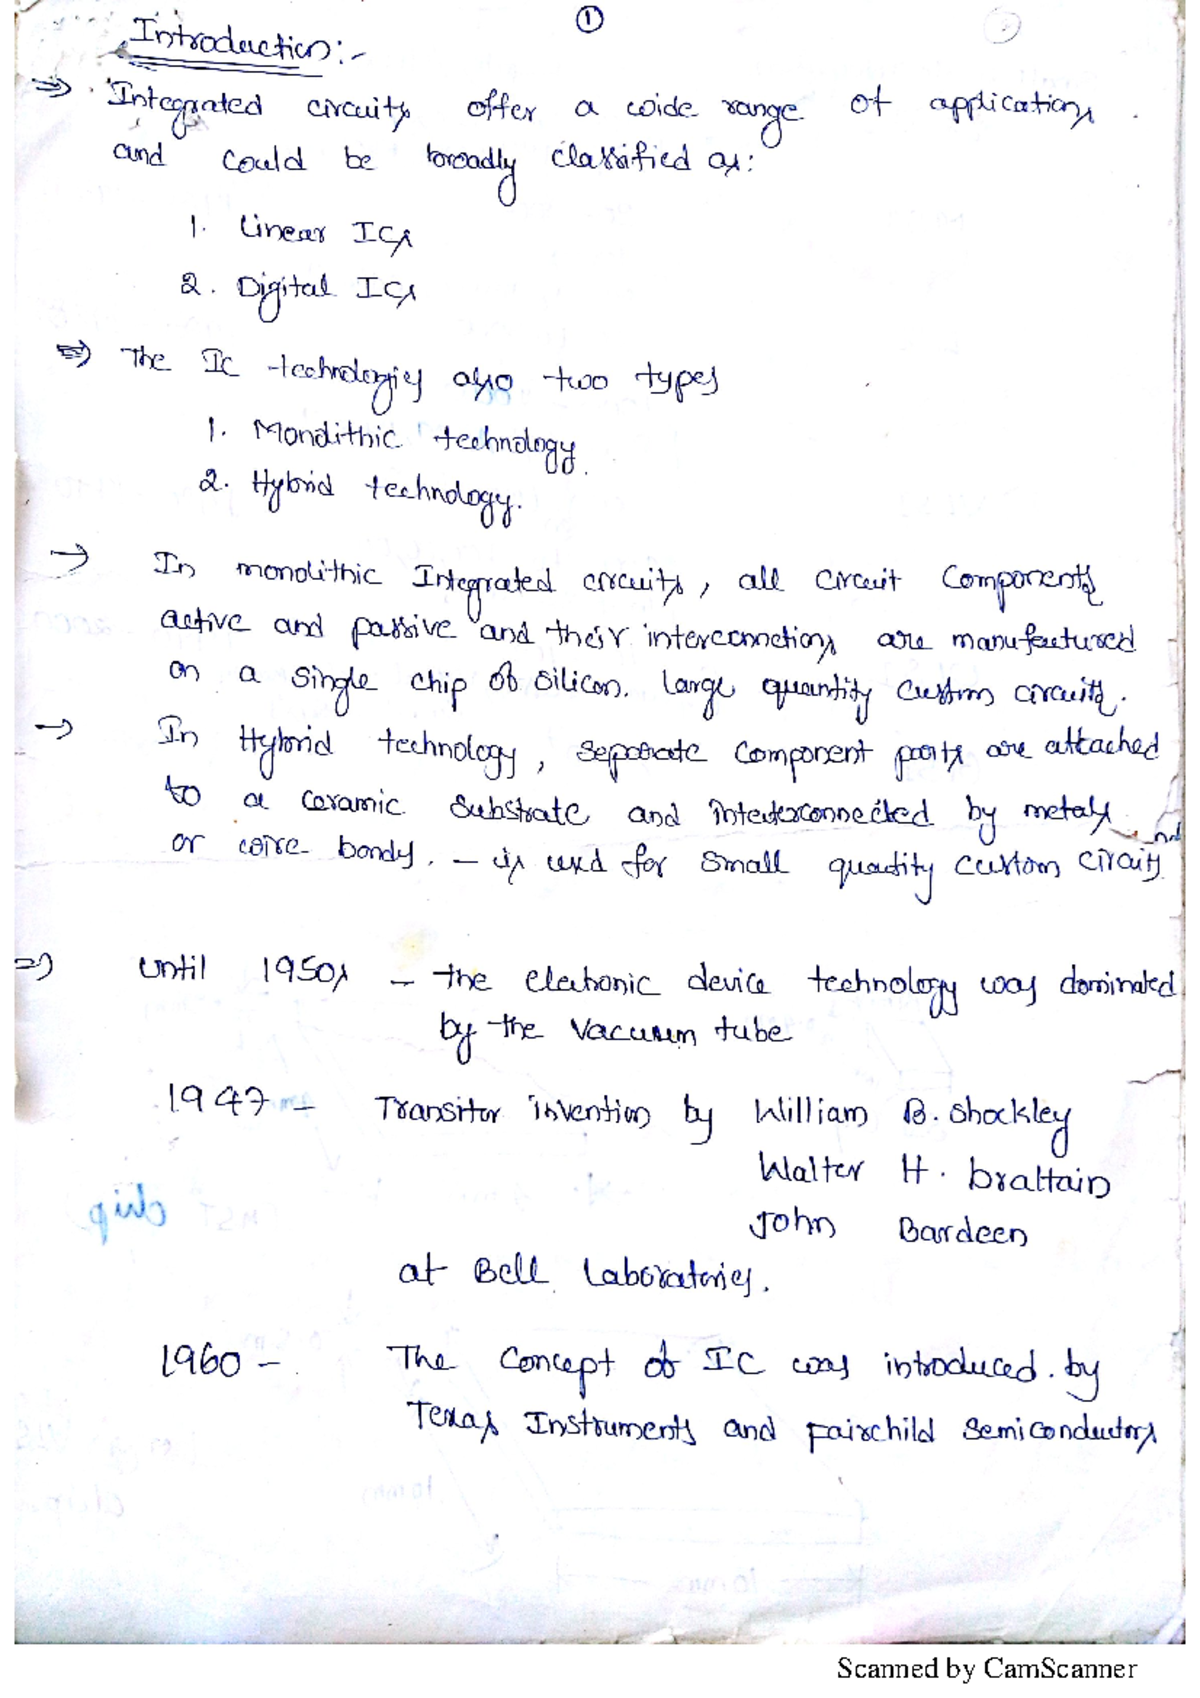 ①
Introduction:-
⇒ Integrated circuits offer a wide range of applications.
and could be broadly classified as:
1. Linear ICs
2. Digital ICs
⇒ The IC technologies also two types
1. Monolithic technology.
2. Hybrid technology.
→ In monolithic Integrated circuits, all circuit Components
active and passive and their interconnections are manufactured
on a single chip of silicon. Large quantity custom circuits.
→ In Hybrid technology, separate component parts are attached
to a ceramic substrate and interconnected by metals
or wire bonds. – is used for small quantity custom circuits
⇒ Until 1950s – the electronic device technology was dominated
by the vacuum tube
1947 – Transitor invention by William B. Shockley
Walter H. brattain
John Bardeen
chip
at Bell Laboratories.
1960 – The Concept of IC was introduced. by
Texas Instruments and Fairchild Semiconductors
Scanned by CamScanner